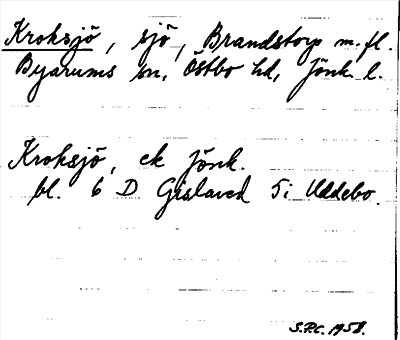 Kroksjö, sjö, Brandstorp m.fl.
Byarums sn, Östbo hd, Jönk. l.
Kroksjö, ek Jönk.
bl. 6 D Gislaved 5i Uddebo.
S.P.C. 1958.